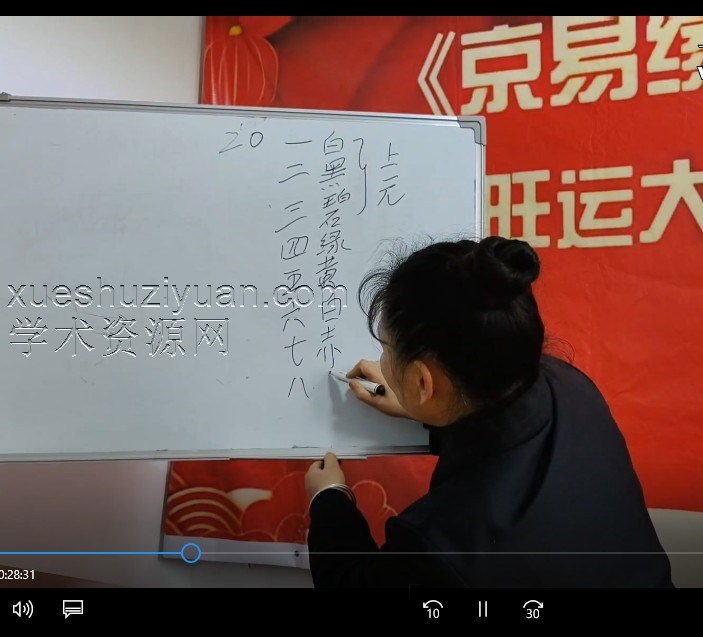 《京易
旺运大
20
上元
白黑碧绿黄白赤
一二三四五六七八
xueshuziyuan.com
学术资源网
0:28:31
10
30